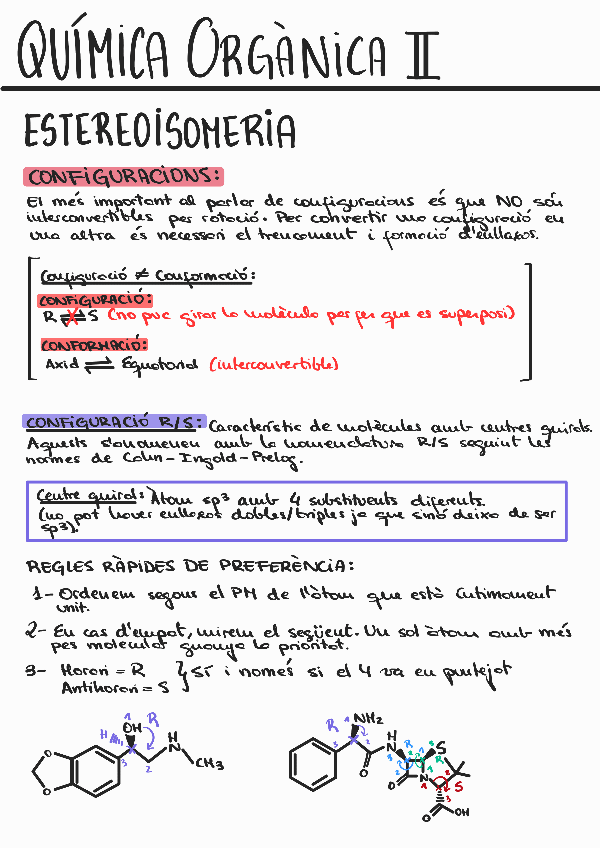 QUÍMICA ORGÀNICA II
ESTEREOISOMERIA
CONFIGURACIONS:
El més important al parlar de configuracions és que NO són
interconvertibles per rotació. Per convertir una configuració en
una altra és necessari el trencament i formació d'enllaços.
Configuració ≠ Conformació:
CONFIGURACIÓ:
R ⇌ S (no puc girar la molècula per fer que es superposi)
CONFORMACIÓ:
Axial ⇌ Equatorial (interconvertible)
CONFIGURACIÓ R/S: Característic de molècules amb centres quirals.
Aquests s'anomenen amb la nomenclatura R/S seguint les
normes de Cahn-Ingold-Prelog.
Centre quiral: Àtom sp3 amb 4 substituents diferents.
(no pot haver enllaços dobles/triples ja que sinó deixa de ser
sp3).
REGLES RÀPIDES DE PREFERÈNCIA:
1- Ordenem segons el PM de l'àtom que està íntimament
unit.
2- En cas d'empat, mirem el següent. Un sol àtom amb més
pes molecular guanya la prioritat.
3- Horari = R } SÍ i només si el 4 va en puntejat
Antihorari = S
1 OH R H 3 2 O O H N CH3
R 1 NH2 3 2 O H N R 2 1 3 S R O N 1 2 3 S O OH